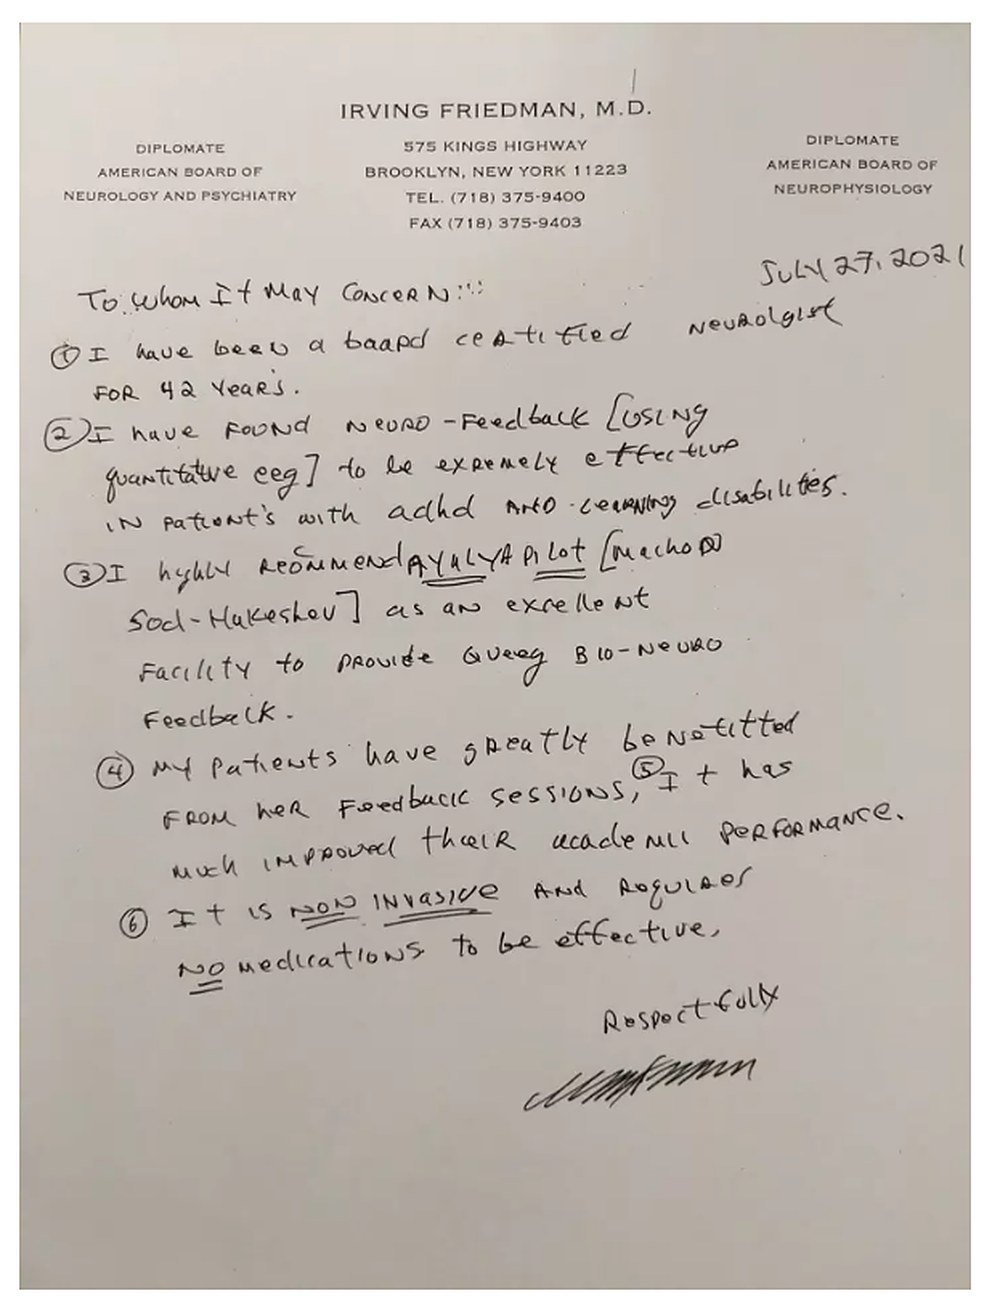 IRVING FRIEDMAN, M.D.
DIPLOMATE
AMERICAN BOARD OF
NEUROLOGY AND PSYCHIATRY
575 KINGS HIGHWAY
BROOKLYN, NEW YORK 11223
TEL. (718) 375-9400
FAX (718) 375-9403
DIPLOMATE
AMERICAN BOARD OF
NEUROPHYSIOLOGY
JULY 27, 2021
To Whom It May Concern:
① I have been a baapd certified Neurolgist
FOR 42 Years.
② I have FOUND NEURO-Feedback [USING
quantitative eeg] to be exremely effective
IN patient's with adhd AND Learning disabilities.
③ I highly Recommend Pilot
as an excellent
Facility to PROVIDE BIO-NEURO
Feedback.
④ My patients have greatly benefitted
FROM her Feedback sessions, ⑤ It has
much IMPROVED academic PERFORMANCE.
⑥ It is NON INVASIVE AND Requires
NO medications to be effective.
Respectfully